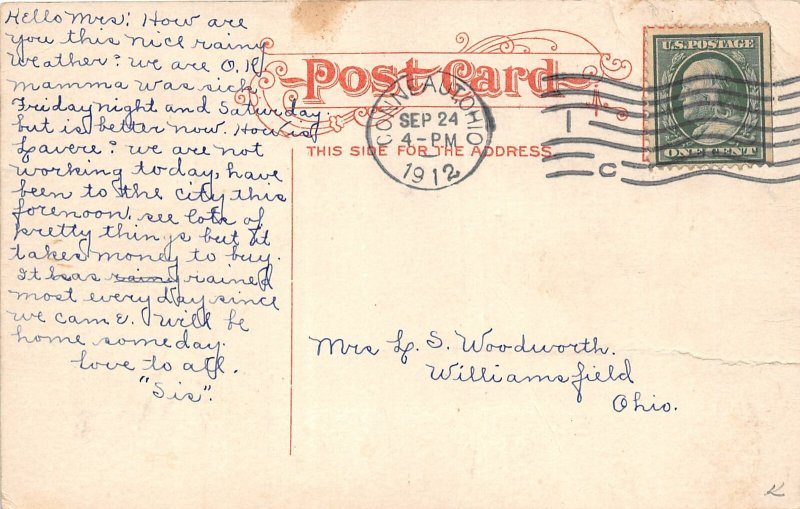 Hello Mrs! How are
you this nice rainy
weather? we are O.K
mamma was sick
Friday night and Saturday
but is better now. How is
Lavere? we are not
working today, have
been to the city this
forenoon. see lots of
pretty things but it
takes money to buy.
It has rainy rained
most every day since
we came. Will be
home someday.
Love to all.
"Sis".
Post Card
THIS SIDE FOR THE ADDRESS.
CONNEAUT, OHIO
SEP 24
4-PM
1912
1
C
U.S. POSTAGE
ONE CENT
Mrs L. S. Woodworth.
Williamsfield
Ohio.